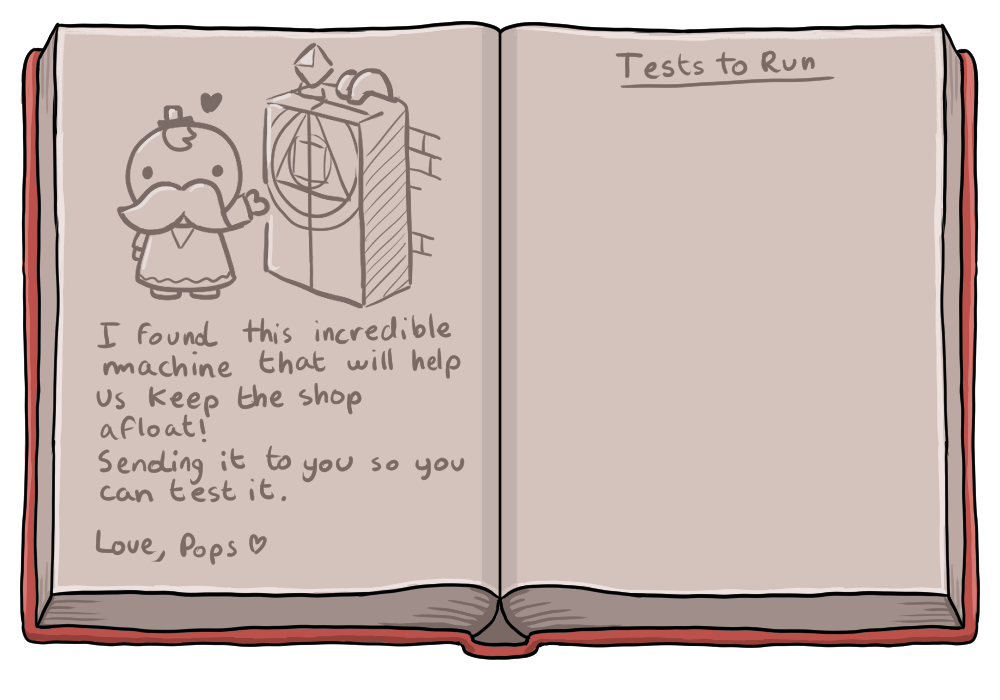 I found this incredible
machine that will help
us keep the shop
afloat!
Sending it to you so you
can test it.
Love, Pops ♡
Tests to Run